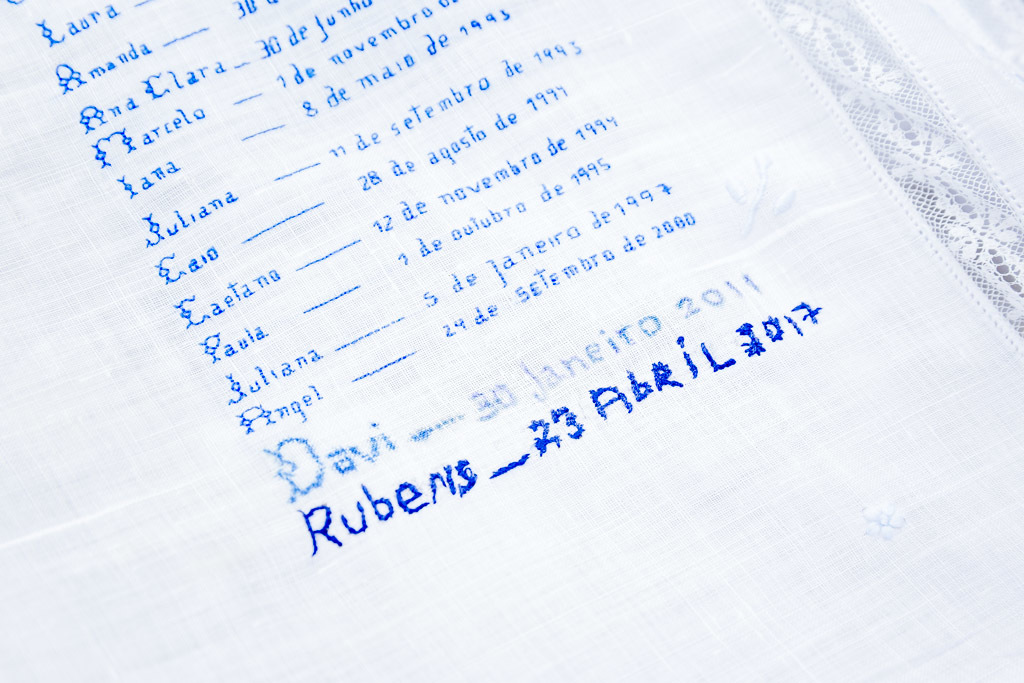 Laura — 30 d
Amanda — 30 de junho
Ana Clara — 30 de junho
Marcelo — 1 de novembro
Iana — 8 de maio de 1993
Juliana — 11 de setembro de 1993
Caio — 28 de agosto de 1994
Caetano — 12 de novembro de 1994
Paula — 1 de outubro de 1995
Juliana — 5 de janeiro de 1997
Angel — 24 de setembro de 2000
Davi — 30 janeiro 2011
Rubens — 23 AbRÍL 2017